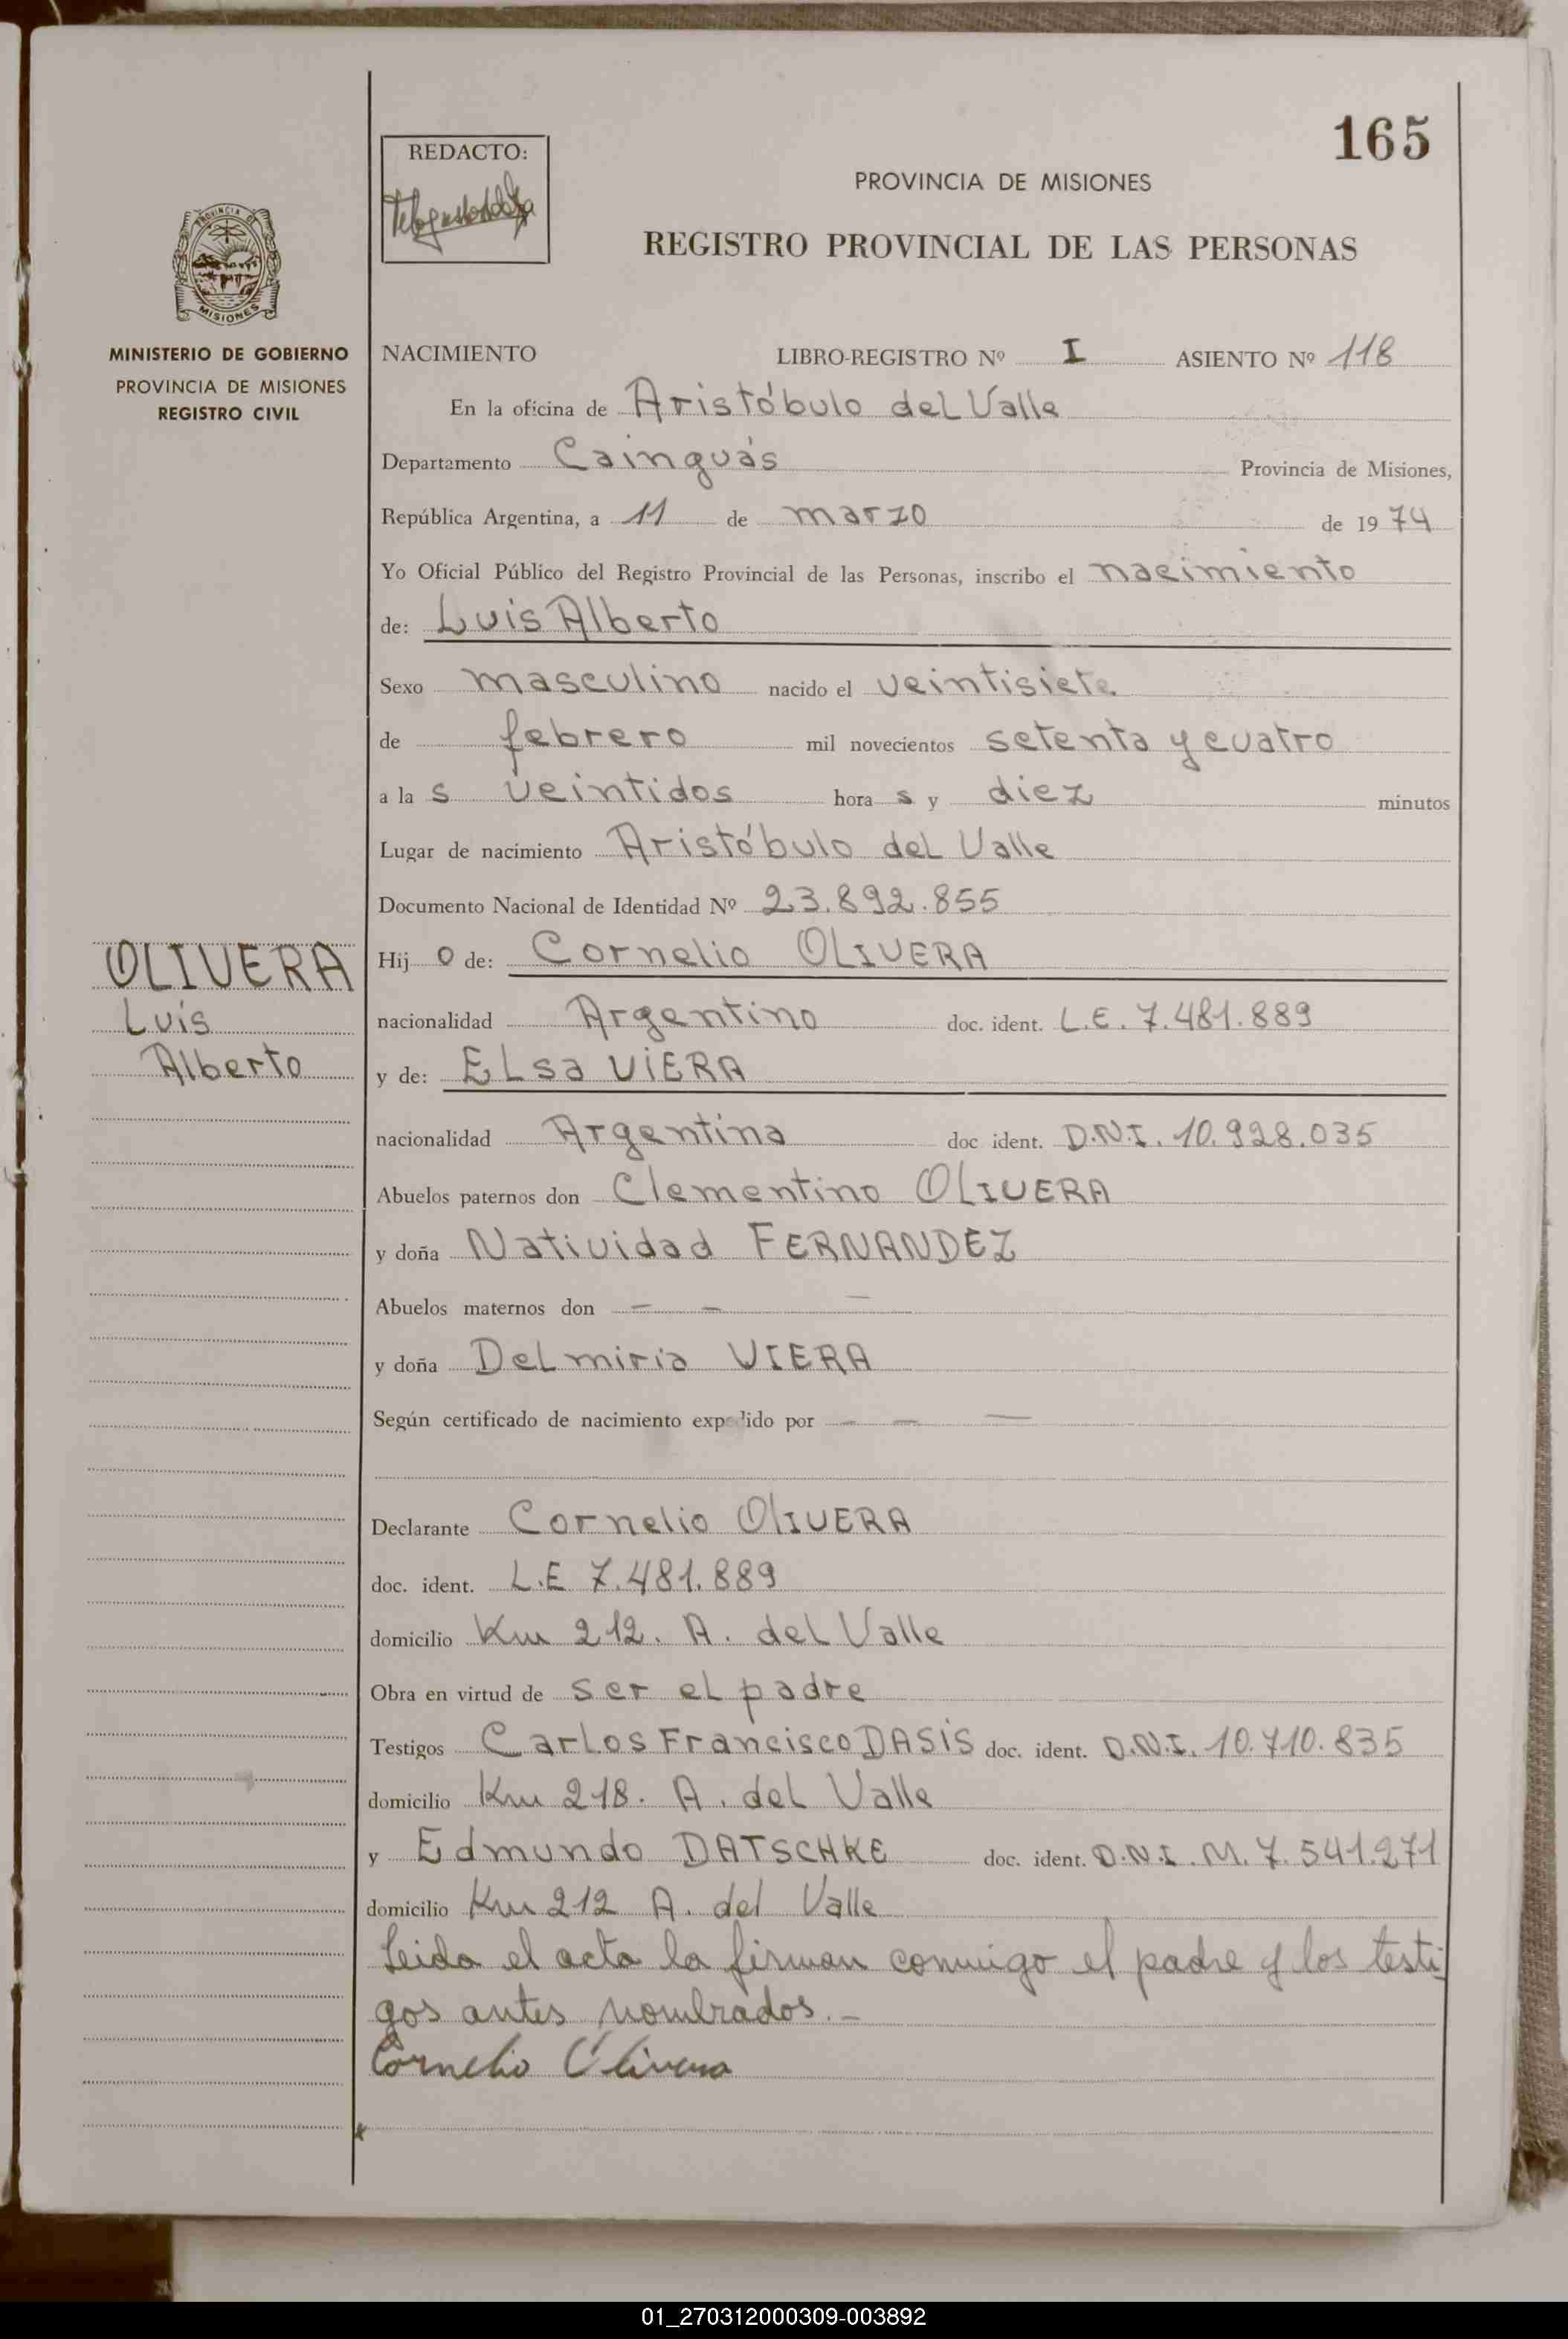 165
REDACTO:
PROVINCIA DE MISIONES
REGISTRO PROVINCIAL DE LAS PERSONAS
PROVINCIA DE
MISIONES
MINISTERIO DE GOBIERNO
PROVINCIA DE MISIONES
REGISTRO CIVIL
NACIMIENTO LIBRO-REGISTRO Nº I ASIENTO Nº 118
En la oficina de Aristóbulo del Valle
Departamento Cainguás Provincia de Misiones,
República Argentina, a 11 de marzo de 1974
Yo Oficial Público del Registro Provincial de las Personas, inscribo el nacimiento
de: Luis Alberto
Sexo masculino nacido el veintisiete
de febrero mil novecientos setenta y cuatro
a la s veintidos hora s y diez minutos
Lugar de nacimiento Aristóbulo del Valle
Documento Nacional de Identidad Nº 23.892.855
OLIVERA
Luis
Alberto
Hij o de: Cornelio OLIVERA
nacionalidad Argentino doc. ident. L.E. 7.481.889
y de: Elsa VIERA
nacionalidad Argentina doc ident. D.N.I. 10.928.035
Abuelos paternos don Clementino OLIVERA
y doña Natividad FERNANDEZ
Abuelos maternos don — — —
y doña Delmiria VIERA
Según certificado de nacimiento expedido por — — —
Declarante Cornelio OlIVERA
doc. ident. L.E 7.481.889
domicilio Km 212. A. del Valle
Obra en virtud de ser el padre
Testigos Carlos Francisco DASIS doc. ident. D.N.I. 10.710.835
domicilio Km 218. A. del Valle
y Edmundo DATSCHKE doc. ident. D.N.I. M. 7.541.271
domicilio Km 212 A. del Valle
Leida el acta la firman conmigo el padre y los testi
gos antes nombrados.-
Cornelio Olivera
01_270312000309-003892